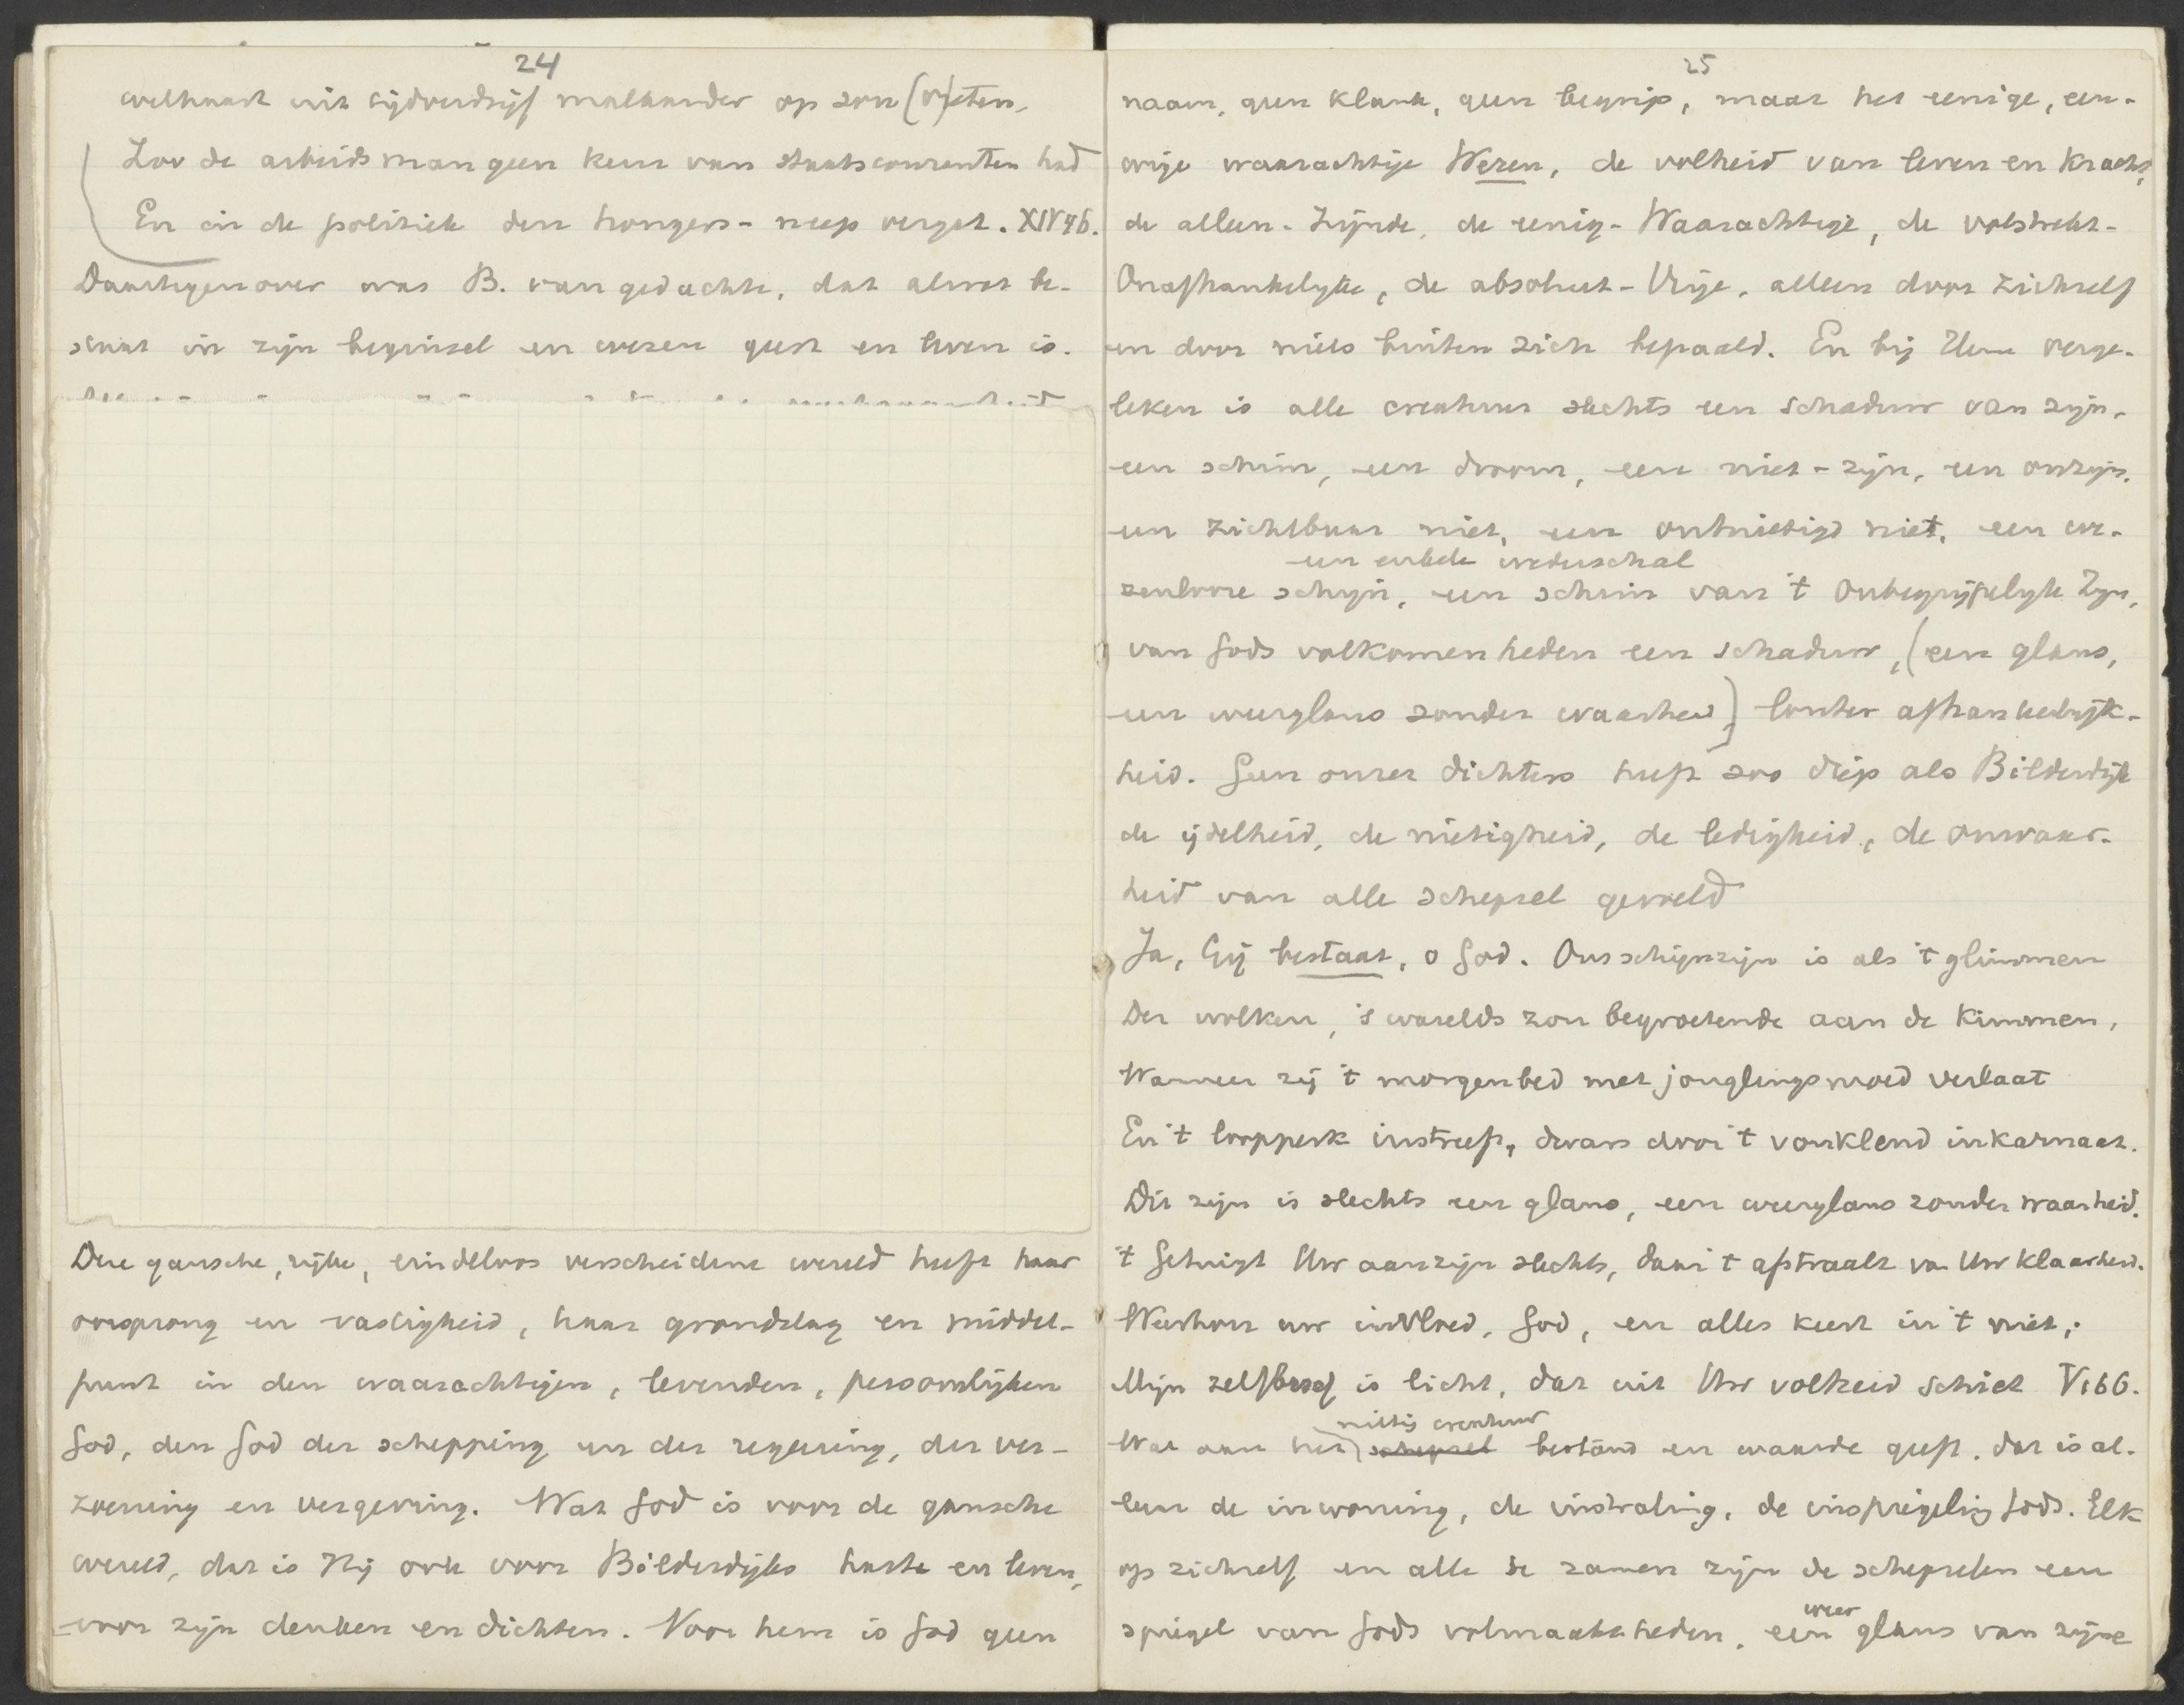 24
welhaast uit tijdverdrijf malkander op zou (v)reten,
Zoo de arbeidsman geen keur van staatscouranten had
En in de politiek den hongers-neep vergat. XIV 46.
Daartegenover was B. van gedachte, dat al wat be-
staat in zijn beginsel en wezen geest en leven is.
Deze gansche, rijke, eindeloos verscheidene wereld heeft haar
oorsprong en vastigheid, haar grondslag en middel-
punt in den waarachtigen, levenden, persoonlijken
God, den God der schepping en der regeering, der ver-
zoening en vergeving. Wat God is voor de gansche
wereld, dat is Hij ook voor Bilderdijks harte en leven,
voor zijn denken en dichten. Voor hem is God geen
25
naam, geen klank, geen begrip, maar het eenige, een-
wige waarachtige Wezen, de volheid van leven en kracht,
de alleen-Zijnde, de eenig-Waarachtige, de volstrekt-
Onafhankelijke, de absoluut-Vrije, alleen door zichzelf
en door niets buiten zich bepaald. En bij Hem verge-
leken is alle creatuur slechts een schaduw van zijn,
een schim, een droom, een niet-zijn, een onzijn,
een zichtbaar niet, een ontnietigd niet, een we-
een enkele wederschal
zenlooze schijn, een schim van 't Onbegrijpelijk Zijn,
van Gods volkomenheden een schaduw, (een glans,
een weerglans zonder waarheid) louter afhankelijk-
heid. Geen onzer dichters heeft zoo diep als Bilderdijk
de ijdelheid, de nietigheid, de ledigheid, de onwaar-
heid van alle schepsel gevoeld
Ja, Gij bestaat, o God. Ons schijnzijn is als 't glimmen
Der wolken, 's warelds zon begroetende aan de kimmen,
Wanneer zij 't morgenbed met jonglingsmoed verlaat
En 't loopperk instreeft, dwars door 't vonklend inkarnaat.
Dit zijn is slechts een glans, een weerglans zonder waarheid.
't Getuigt Uw aanzijn slechts, daar 't afstraalt van Uw klaarheid.
Weerhou uw invloed, God, en alles keert in 't niet,
Mijn zelfbesef is licht, dat uit Uw volheid schiet V 166.
nietig creatuur
Wat aan het schepsel bestand en waarde geeft, dat is al-
leen de inwoning, de instraling, de inspiegeling Gods. Elk
op zichzelf en alle te zamen zijn de schepselen een
weer
spiegel van Gods volmaaktheden, een glans van zijne